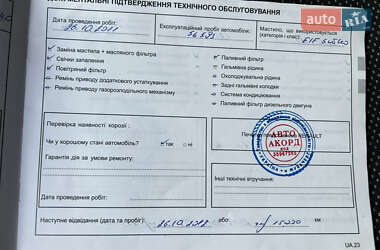 ДОКУМЕНТАЛЬНІ ПІДТВЕРДЖЕННЯ ТЕХНІЧНОГО ОБСЛУГОВУВАННЯ
AUTO.RIA
Дата проведення робіт: Експлуатаційний пробіг автомобіля: Мастило, що використовується
(категорія і клас):
26.10.2011
Заміна мастила + масляного фільтра
Свічки запалення
Повітряний фільтр
Ремінь приводу додаткового устаткування
Ремінь приводу газорозподільного механізму
Паливний фільтр
Гальмівна рідина
Охолоджувальна рідина
Задні гальмівні колодки
Система кондиціювання
Паливний фільтр дизельного двигуна
Перевірка наявності корозії :
Чи у хорошому стані автомобіль? так ні
Гарантія дія за умови ремонту:
Дата проведення робіт:
АВТО
АКОРД
Інші технічні втручання:
Наступне відвідання (дата та пробіг) 26.10.2012 або 15000 км
UA.23